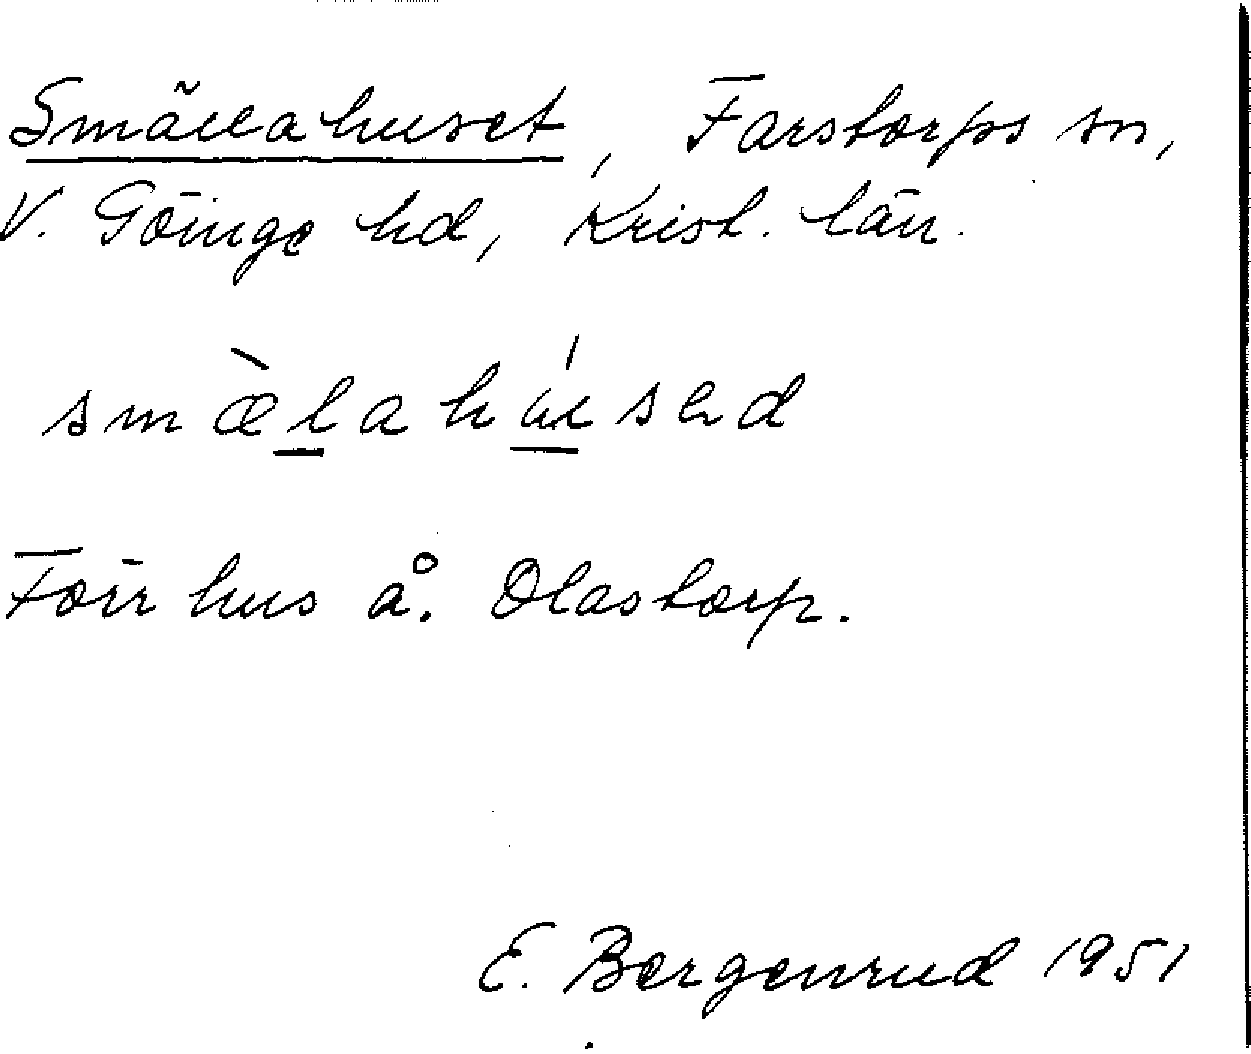 Smällahuset, Farstorps sn,
V. Göinge hd, Krist. län.
smæ̀l̲ahú̲sed
Förr hus å. Olastorp.
E. Bergenrud 1951